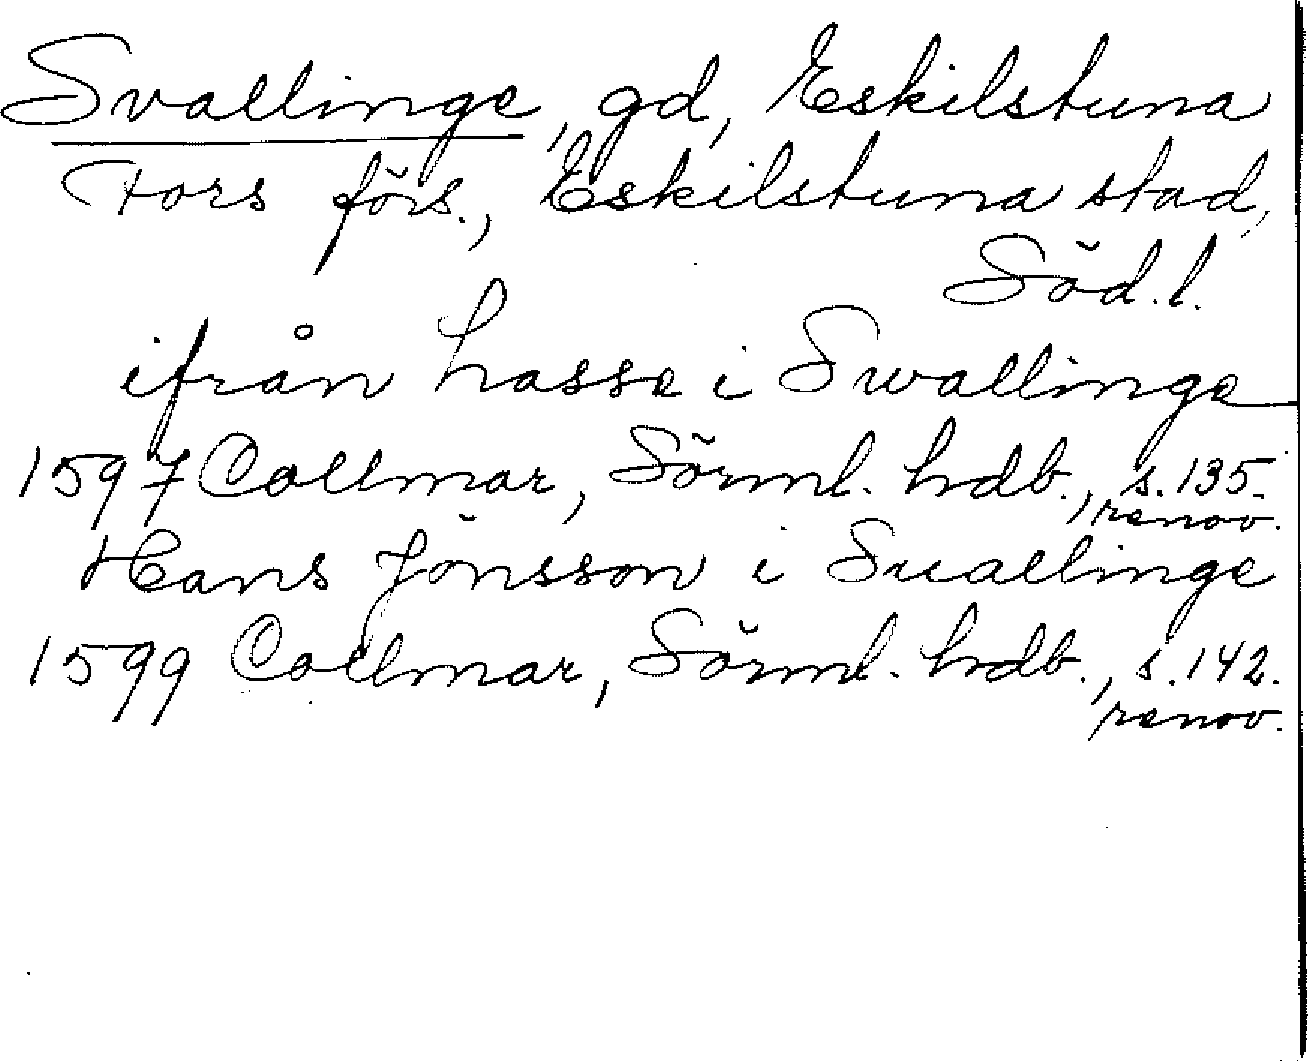 Svallinge, gd, Eskilstuna
Fors förs., Eskilstuna stad,
Söd. l.
ifrån Lasse i Swallinge
1597 Collmar, Sörml. hdb., s. 135.
renov.
Hans Jönsson i Suallinge
1599 Collmar, Sörml. hdb., s. 142.
renov.